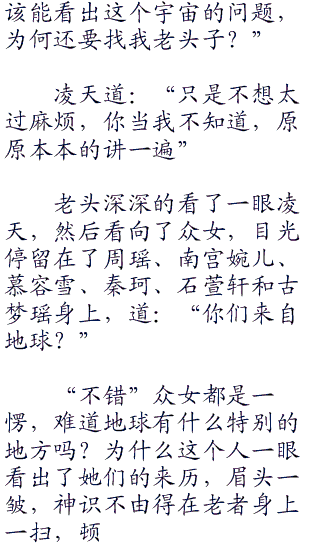 该能看出这个宇宙的问题，
为何还要找我老头子？”
凌天道：“只是不想太
过麻烦，你当我不知道，原
原本本的讲一遍”
老头深深的看了一眼凌
天，然后看向了众女，目光
停留在了周瑶、南宫婉儿、
慕容雪、秦珂、石萱轩和古
梦瑶身上，道：“你们来自
地球？”
“不错”众女都是一
愣，难道地球有什么特别的
地方吗？为什么这个人一眼
看出了她们的来历，眉头一
皱，神识不由得在老者身上
一扫，顿